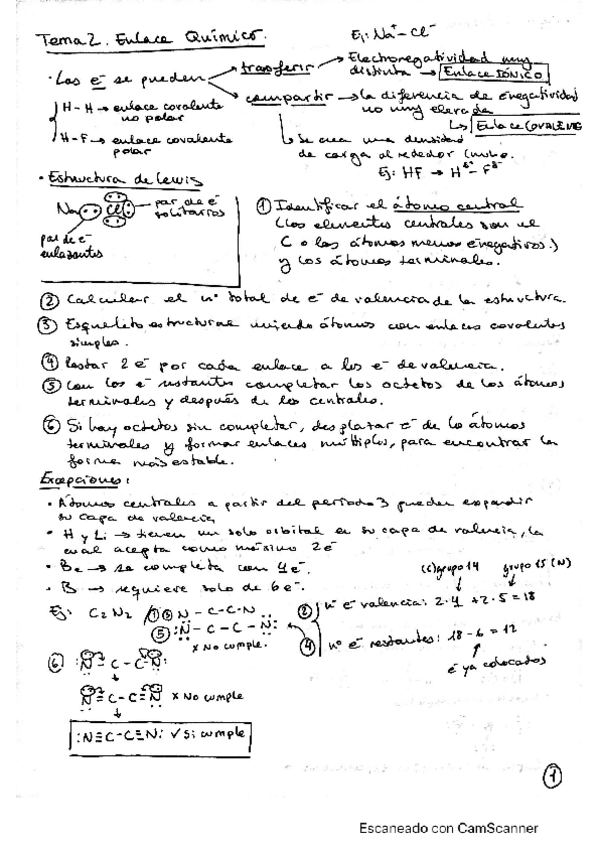 Tema 2. Enlace Químico.
Ej: Na⁺ - Cl⁻
· Los e⁻ se pueden → trasferir → Electronegatividad muy distinta → Enlace IÓNICO
compartir → la diferencia de enegatividad no muy elevada
↳ Enlace COVALENTE
H - H → enlace covalente no polar
H - F → enlace covalente polar
↳ Se crea una densidad de carga alrededor
Ej: HF → H - F
· Estructura de Lewis
Na Cl → par de e⁻ solitarios
par de e⁻ enlazantes
① Identificar el átomo central
(los elementos centrales son el
C o los átomos menos enegativos)
y los átomos terminales.
② Calcular el nº total de e⁻ de valencia de la estructura.
③ Esqueleto estructural uniendo átomos con enlaces covalentes
simples.
④ Restar 2 e⁻ por cada enlace a los e⁻ de valencia.
⑤ Con los e⁻ restantes completar los octetos de los átomos
terminales y después de los centrales.
⑥ Si hay octetos sin completar, desplazar e⁻ de lo átomos
terminales y formar enlaces múltiples, para encontrar la
forma más estable.
Excepciones:
· Átomos centrales a partir del periodo 3 pueden expandir
su capa de valencia
· H y Li → tienen un solo orbital en su capa de valencia, la
cual acepta como máximo 2 e⁻
· Be → se completa con 4 e⁻.
· B → requiere solo de 6 e⁻.
(C) grupo 14 grupo 15 (N)
Ej: C₂N₂ ① ③ N - C - C - N
② nº e⁻ valencia: 2·4 + 2·5 = 18
⑤ :N - C - C - N:
x No cumple.
④ nº e⁻ restantes: 18 - 6 = 12
e⁻ ya colocados
⑥ N - C - C - N:
N = C - C = N x No cumple
:N≡C-C≡N: ✓ Si cumple
①
Escaneado con CamScanner